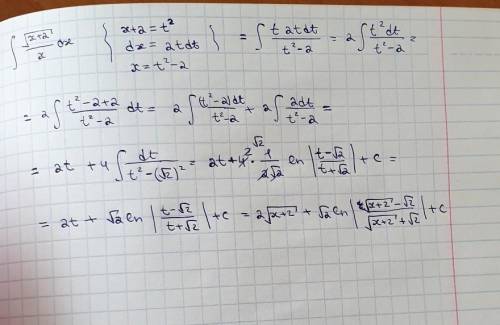 ∫ √(x+2)/x dx { x+2 = t² dx = 2tdt x = t²-2 } = ∫ t 2tdt/(t²-2) = 2 ∫ t²dt/(t²-2) =
= 2 ∫ (t²-2+2)/(t²-2) dt = 2 ∫ (t²-2)dt/(t²-2) + 2 ∫ 2dt/(t²-2) =
= 2t + 4 ∫ dt/(t²-(√2)²) = 2t + 4 2 √2 · 1/(2√2) ln |(t-√2)/(t+√2)| + c =
= 2t + √2 ln |(t-√2)/(t+√2)| + c = 2√(x+2) + √2 ln |(√(x+2) - √2)/(√(x+2) + √2)| + c